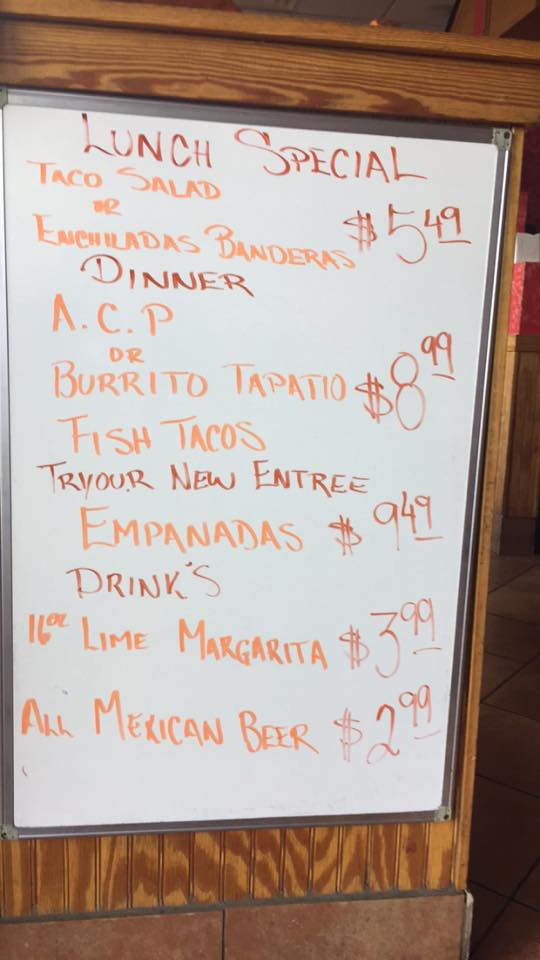 LUNCH SPECIAL
TACO SALAD
OR
ENCHILADAS BANDERAS $5.49
DINNER
A.C.P
OR
BURRITO TAPATIO $8.99
FISH TACOS
TRYOUR NEW ENTREE
EMPANADAS $9.49
DRINK'S
16oz LIME MARGARITA $3.99
ALL MEXICAN BEER $2.99